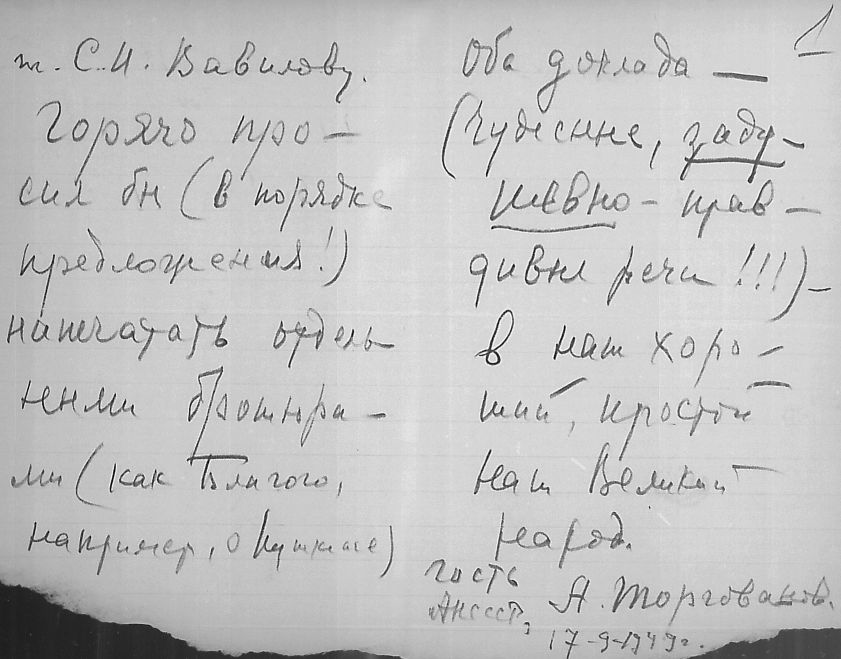 т. С.И. Вавилову.
Горячо про-
сил бы (в порядке
предложения!)
напечатать отдель-
ными брошюра-
ми (как Благого,
например, о Пушкине)
1
Оба доклада —
(чудесные, заду-
шевно - прав-
дивые речи!!!) -
в наш хоро-
ший, простой
наш Великий
народ.
гость
А. Торгованов.
17-9-1949г.